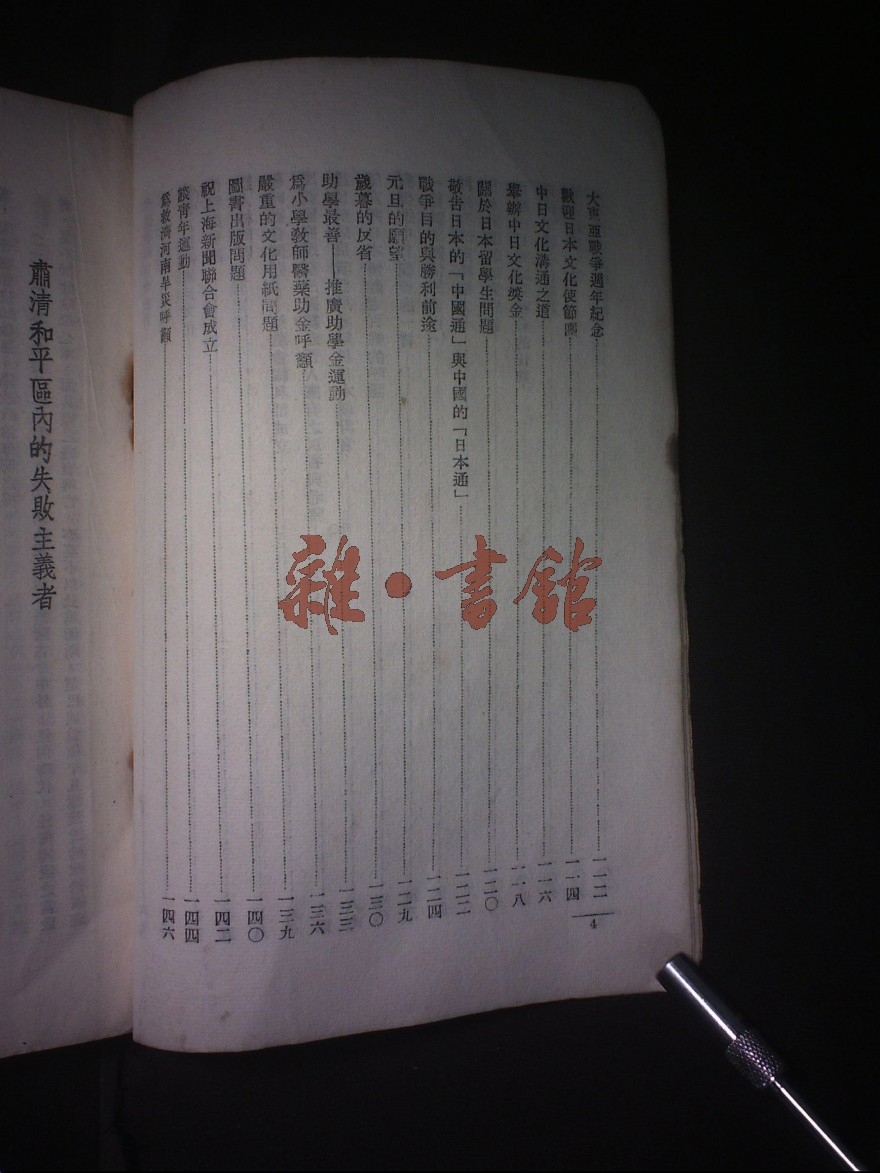 大東亞戰爭週年紀念……一一二
歡迎日本文化使節團……一一四
中日文化溝通之道……一一六
舉辦中日文化獎金……一一八
關於日本留學生問題……一二〇
敬告日本的「中國通」與中國的「日本通」……一二二
戰爭目的與勝利前途……一二四
元旦的願望……一二九
歲暮的反省……一三〇
助學最善——推廣助學金運動……一三三
爲小學教師醫藥助金呼籲……一三六
嚴重的文化用紙問題……一三九
圖書出版問題……一四〇
祝上海新聞聯合會成立……一四二
談青年運動……一四四
爲救濟河南旱災呼籲……一四六
4
肅清和平區內的失敗主義者
雜·書館